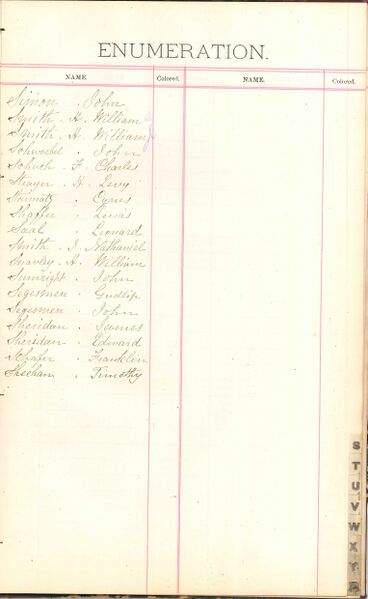 ENUMERATION.
NAME. Colored. NAME. Colored.
Simon . John
Smith . H. William
Smith . H. William
Schwoebel . John
Schoch . F. Charles
Strayer . H. Levy
Cyrus
Shaffer . Lewis
Saal . Leonard
Smith . J. Nathaniel
Snavley . H. William
John
Segesmen . Gudlip
Segesmen . John
Sheridan . James
Sheridan . Edward
Schafer . Franklin
Sheehan . Timothy
S
T
U
V
W
X
Y